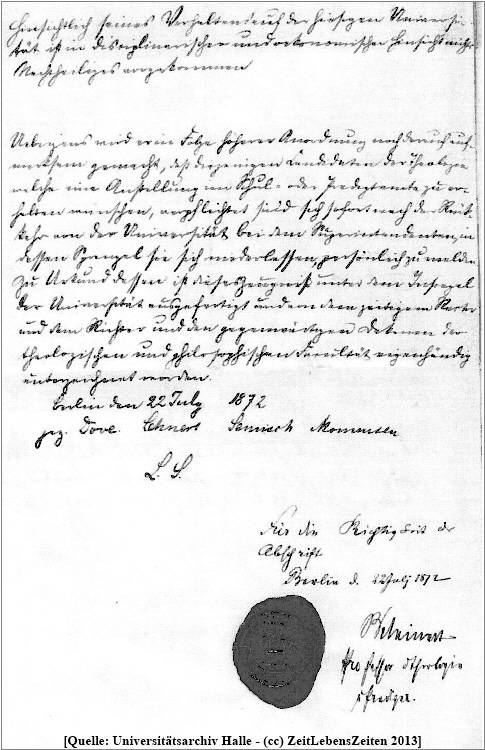 Hinsichtlich seines Verhaltens auf der hiesigen Universi-
tät ist in disciplinarischer und oekonomischer Hinsicht nichts
Nachtheiliges vorgekommen
Uebrigens wird er in Folge höherer Anordnung noch darauf auf-
merksam gemacht, daß diejenigen Candidaten der Theologie
welche eine Anstellung im Schul- oder Predigtamte zu er-
halten wünschen, verpflichtet sind sich sofort nach der Rück-
kehr von der Universität bei dem Superintendenten, in
dessen Sprengel sie sich niederlassen, persönlich zu melden
Zu Urkund dessen ist dieses Zeugniß unter dem Insiegel
der Universität ausgefertigt und von dem zeitigen Rector
und dem Richter und den gegenwärtigen Dekanen der
theologischen und philosophischen Facultät eigenhändig
unterzeichnet worden.
Berlin den 22 July 1872
gez. Dove. Lehnert Semisch Mommsen
L. S.
Für die Richtigkeit der
Abschrift
Berlin d. July 1872
Kleinert
Professor d Theologie
[Quelle: Universitätsarchiv Halle - (cc) ZeitLebensZeiten 2013]